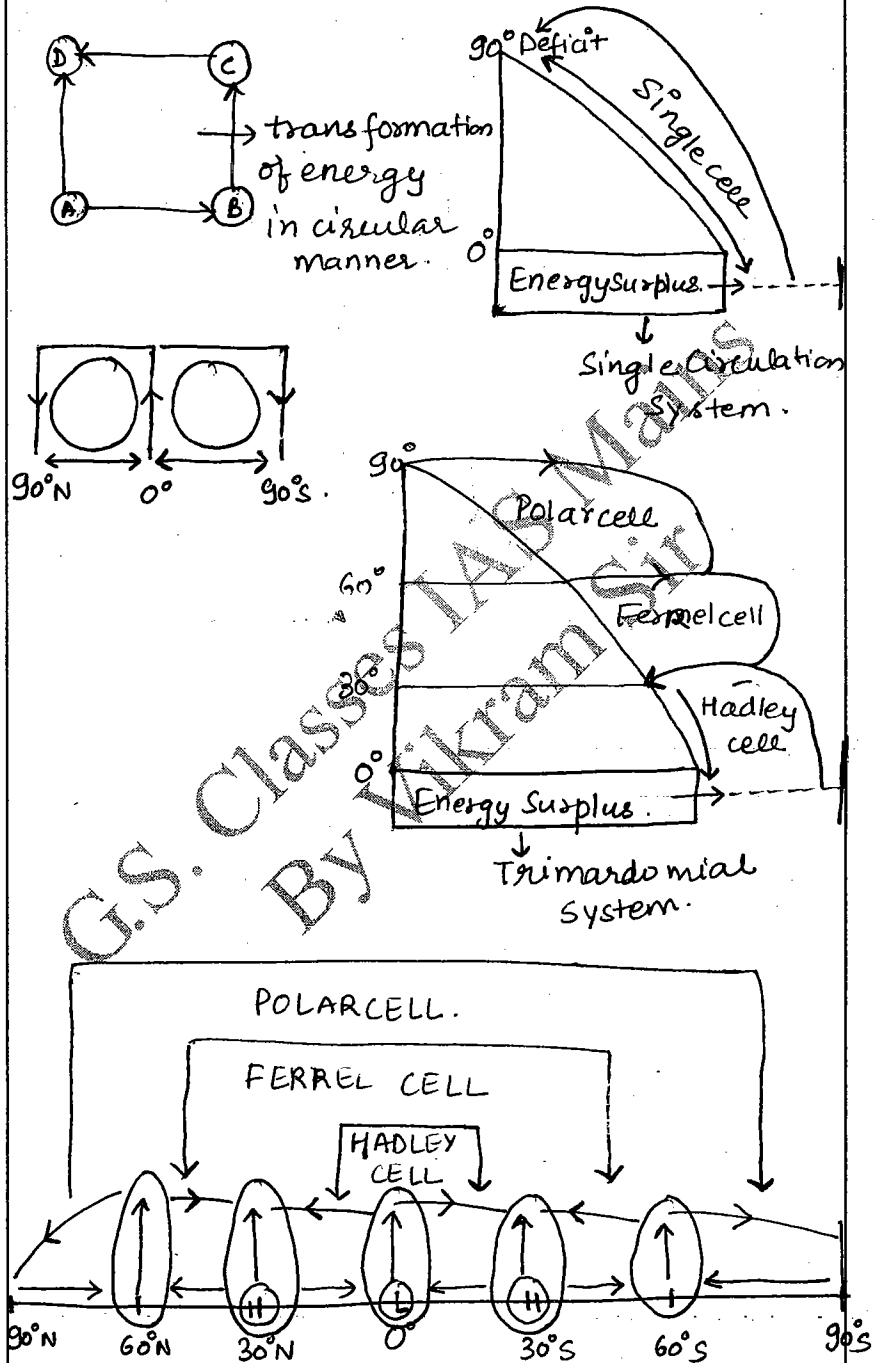 D
C
A
B
→ transformation
of energy
in circular
manner.
90° Deficit
Single cell
0°
Energy Surplus.
Single Circulation
System.
90°N 0° 90°S.
90°
Polar cell
60°
Ferrel cell
30°
Hadley
cell
0°
Energy Surplus.
Trimardomial
System.
G.S. Classes IAS Mains
By Vikram Sir
POLARCELL.
FERREL CELL
HADLEY
CELL
H L H
90°N 60°N 30°N 0° 30°S 60°S 90°S